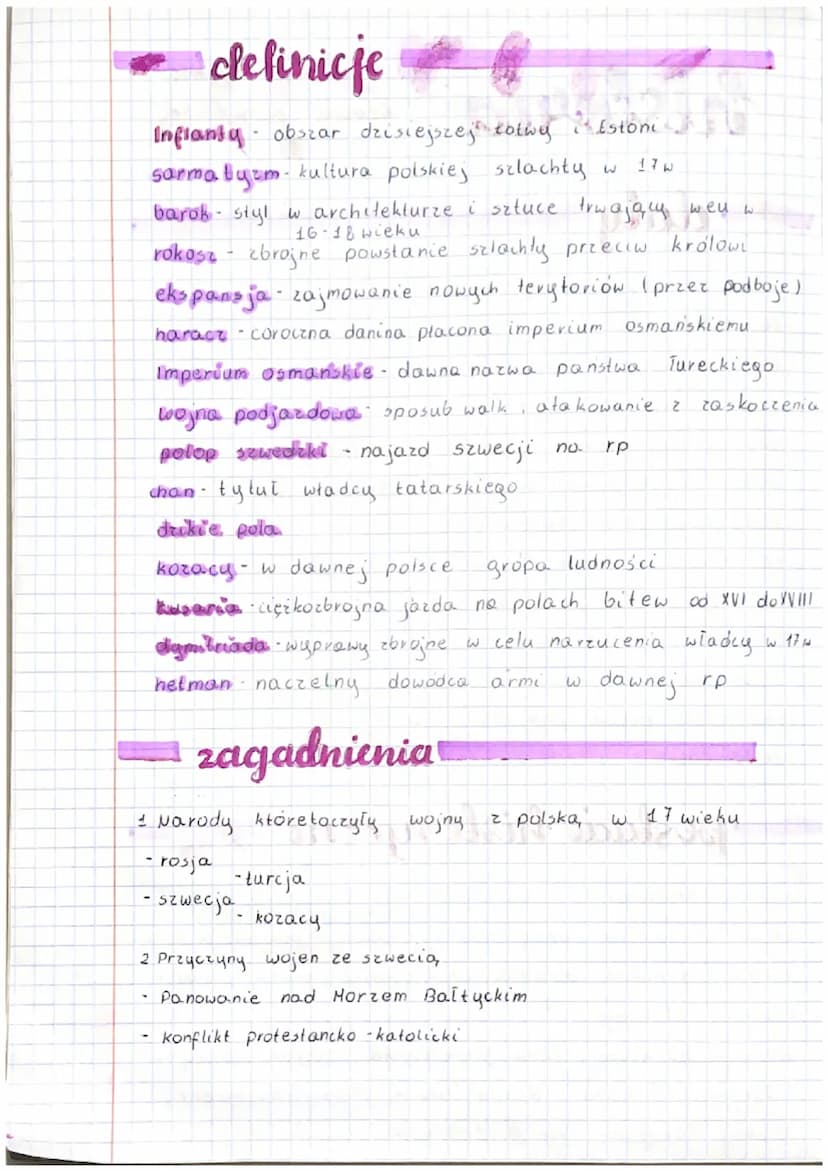 definicje
Inflanty - obszar dzisiejszej łotwy i Estoni
sarmatyzm - kultura polskiej szlachty w 17w
barok - styl w architekturze i sztuce trwający w
16-18 wieku
rokosz - zbrojne powstanie szlachty przeciw królowi
ekspansja - zajmowanie nowych terytoriów (przez podboje)
haracz - coroczna danina płacona imperium osmańskiemu
Imperium osmańskie - dawna nazwa państwa Tureckiego
wojna podjazdowa - sposub walk, atakowanie z zaskoczenia
potop szwedzki - najazd szwecji na rp
chan - tytuł władcy tatarskiego
dzikie pola
kozacy - w dawnej polsce grópa ludności
husaria - ciężkozbrojna jazda na polach bitew od XVI do XVIII
dymitriada - wyprawy zbrojne w celu narzucenia władcy w 17w
hetman - naczelny dowódca armi w dawnej rp
zagadnienia
1 Narody któretoczyły wojny z polską w 17 wieku
- rosja
- turcja
- szwecja
- kozacy
2 Przyczyny wojen ze szwecią
- Panowanie nad Morzem Bałtyckim
- konflikt protestancko - katolicki